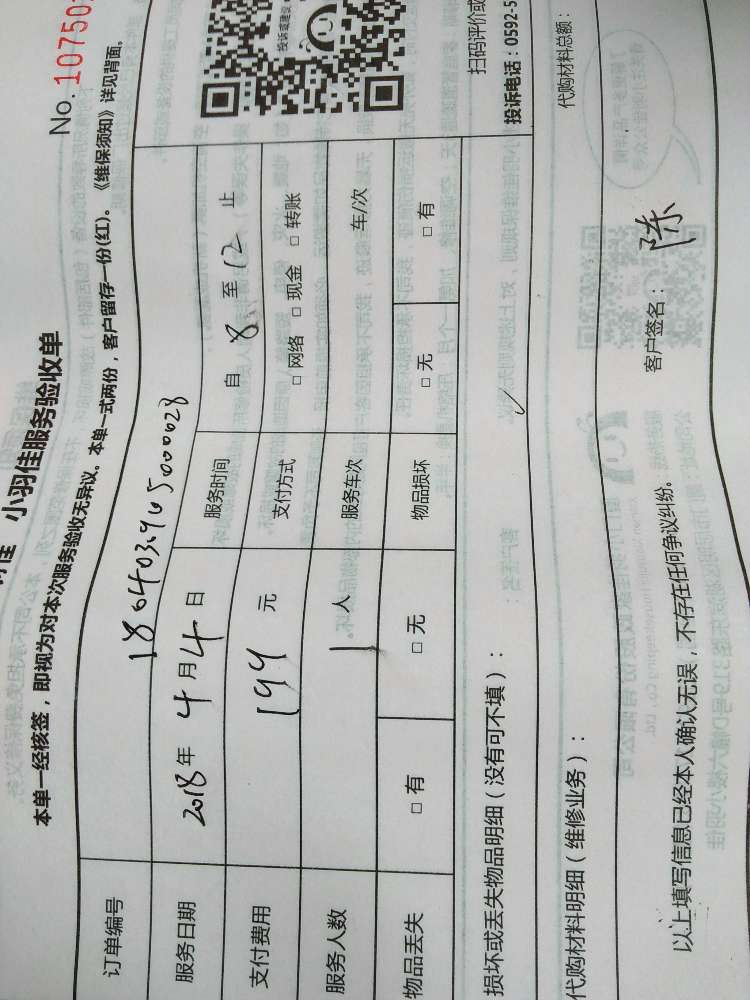 小羽佳服务验收单
No. 107503
本单一经核签，即视为对本次服务验收无异议。本单一式两份，客户留存一份(红)。《维保须知》详见背面。
订单编号
服务日期 2018年 4月 4日 服务时间 自 8 至 12 止
支付费用 199 元 支付方式 □ 网络 □ 现金 □ 转账
服务人数 1 人 服务车次 车/次
物品丢失 □ 有 □ 无 物品损坏 □ 无 □ 有
投诉或建议
扫码评价或
投诉电话：0592-5
损坏或丢失物品明细（没有可不填）：
代购材料明细（维修业务）：
代购材料总额：
以上填写信息已经本人确认无误，不存在任何争议纠纷。
客户签名： 陈